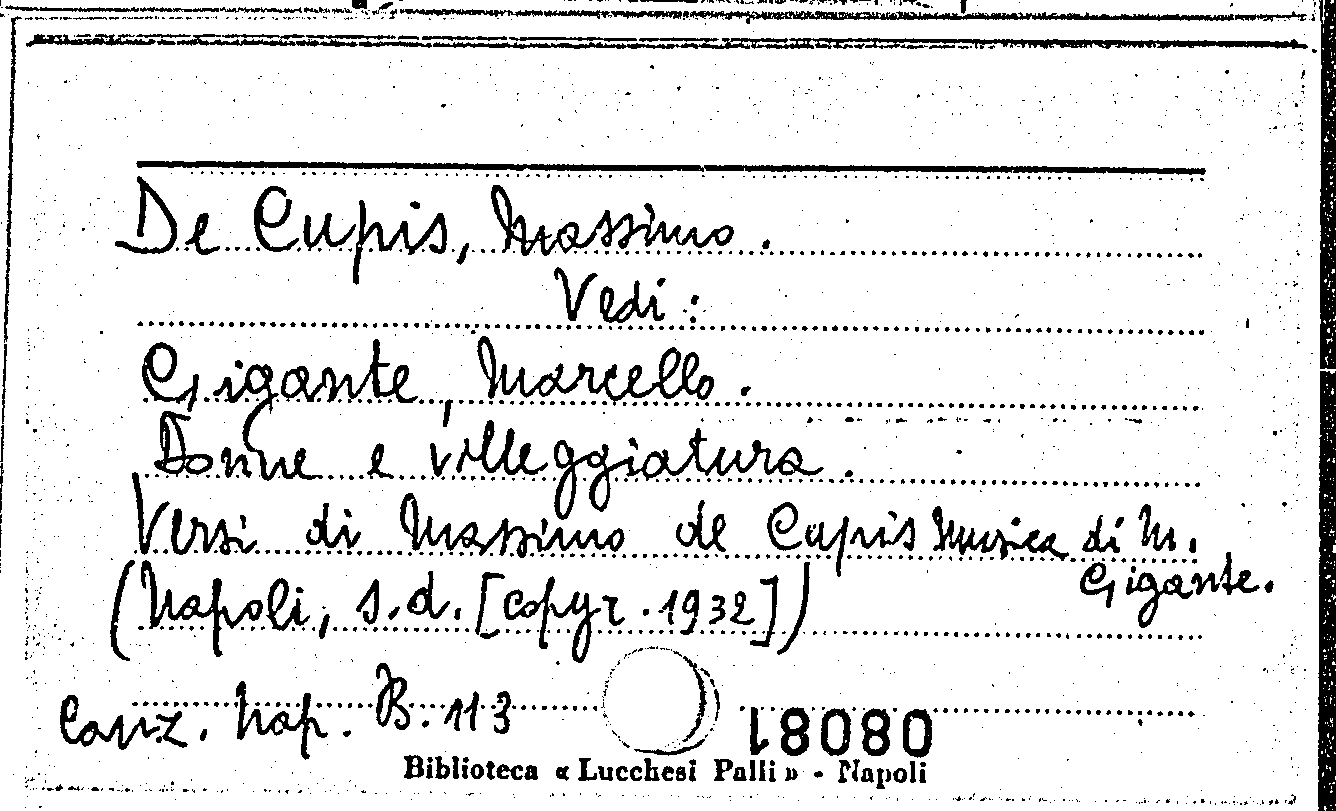 De Cupis, Massimo.
Vedi:
Gigante, Marcello.
Donne e villeggiatura.
Versi di Massimo de Cupis Musica di M.
Gigante.
(Napoli, s.d. [copyr. 1932])
Canz. Nap. B. 113
08081
Biblioteca « Lucchesi Palli » - Napoli